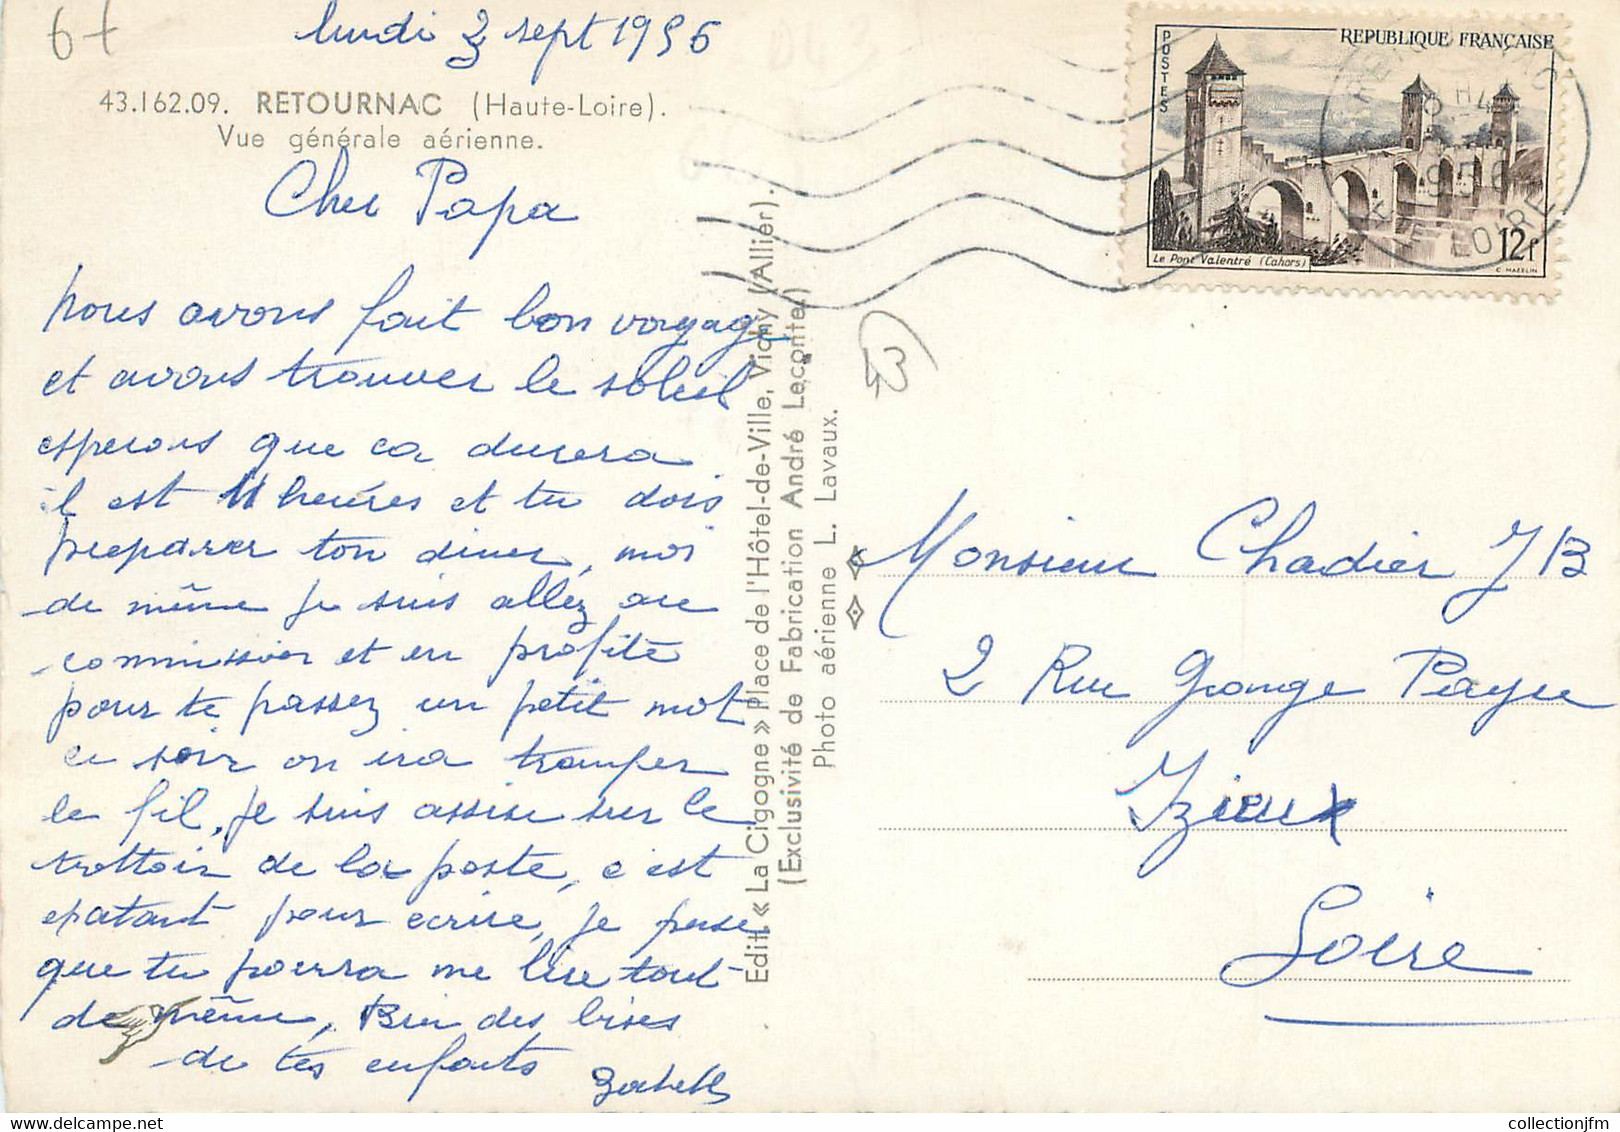 6f
lundi 3 sept 1956
43.162.09. RETOURNAC (Haute-Loire).
Vue générale aérienne.
Cher Papa
nous avons fait bon voyage
et avons trouver le soleil
esperons que ca durera
il est 11 heures et tu dois
preparer ton diner, moi
de même je suis allez au
commission et en profite
pour te passez un petit mot
ce soir on ira tramper
le fil, je suis assise sur le
trottoir de la poste, c'est
epatant pour ecrire, je pense
que tu pourra me lire tout
de même, Bien des bises
de tes enfants
Edit. « La Cigogne » Place de l'Hôtel-de-Ville, Vichy (Allier).
(Exclusivité de Fabrication André Leconte)
Photo aérienne L. Lavaux.
43
POSTES
REPUBLIQUE FRANÇAISE
Le Pont Valentré (Cahors)
12f
C. MAZELIN
RETOURNAC
1956
HTE LOIRE
Monsieur Chadier JB
2 Rue Grange Payre
Izieux
Loire
collectionjfm